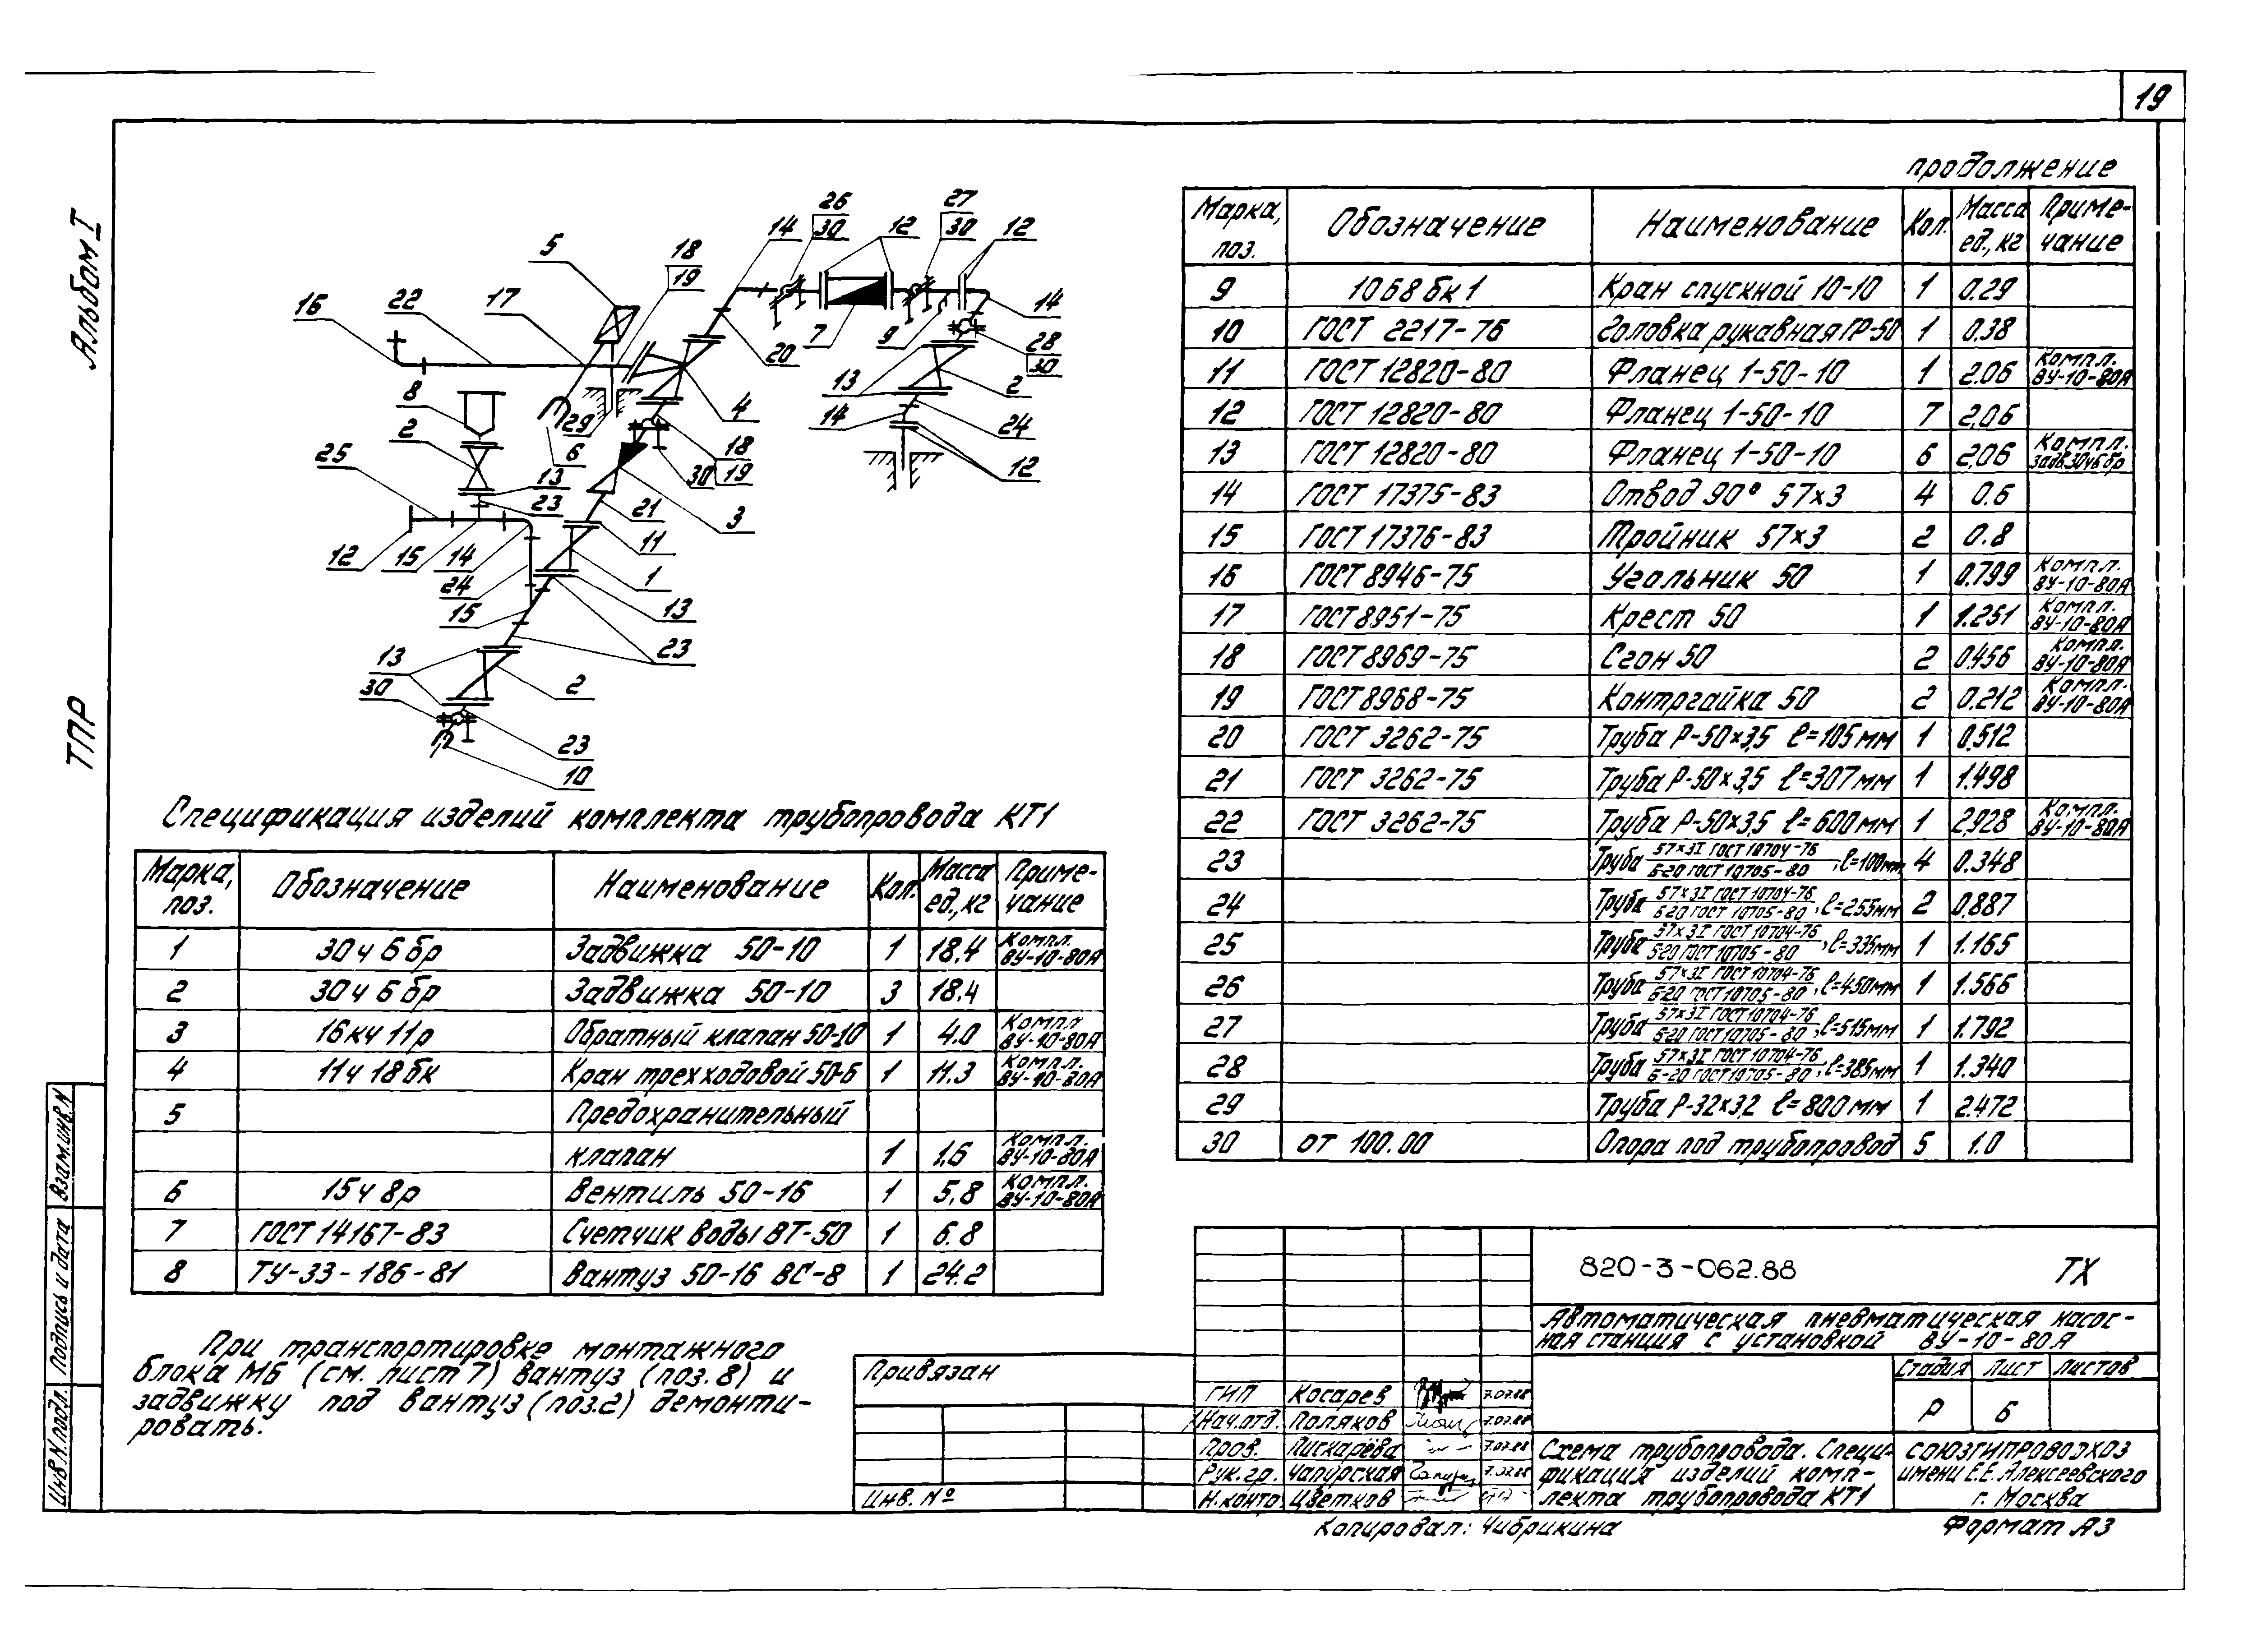 19
Альбом I
ТПР
продолжение
5 18 19 14 26 30 12 27 30 12
16 22 17 14
7 9 20 28 30
8 13 2
4 14 24
2 29 6 18 19 12
25 30
13 23 21 3
12 15 14 11
24 1
15 13
13 23
30 2
23
10
Спецификация изделий комплекта трубопровода КТ1
Марка, поз. Обозначение Наименование Кол. Масса ед., кг Приме-чание
1 30ч 6 бр Задвижка 50-10 1 18.4 Компл. ВУ-10-80А
2 30ч 6 бр Задвижка 50-10 3 18.4
3 16кч 11р Обратный клапан 50-10 1 4.0 Компл ВУ-10-80А
4 11ч 18бк Кран трехходовой 50-6 1 11.3 Компл. ВУ-10-80А
5 Предохранительный
клапан 1 1.6 Компл. ВУ-10-80А
6 15ч 8р Вентиль 50-16 1 5,8 Компл. ВУ-10-80А
7 ГОСТ 14167-83 Счетчик воды ВТ-50 1 6.8
8 ТУ-33-186-81 Вантуз 50-16 ВС-8 1 24.2
При транспортировке монтажного
блока МБ (см. лист 7) вантуз (поз. 8) и
задвижку под вантуз (поз.2) демонти-
ровать.
Марка, поз. Обозначение Наименование Кол. Масса ед., кг Приме-чание
9 1068 бк 1 Кран спускной 10-10 1 0.29
10 ГОСТ 2217-76 Головка рукавная ГР-50 1 0.38
11 ГОСТ 12820-80 Фланец 1-50-10 1 2.06 Компл. ВУ-10-80А
12 ГОСТ 12820-80 Фланец 1-50-10 7 2,06
13 ГОСТ 12820-80 Фланец 1-50-10 6 2,06 Компл. задв.30ч6бр
14 ГОСТ 17375-83 Отвод 90° 57×3 4 0.6
15 ГОСТ 17376-83 Тройник 57×3 2 0.8
16 ГОСТ 8946-75 Угольник 50 1 0.799 Компл. ВУ-10-80А
17 ГОСТ 8951-75 Крест 50 1 1.251 Компл. ВУ-10-80А
18 ГОСТ 8969-75 Сгон 50 2 0.456 Компл. ВУ-10-80А
19 ГОСТ 8968-75 Контргайка 50 2 0.212 Компл. ВУ-10-80А
20 ГОСТ 3262-75 Труба Р-50×3,5 ℓ=105мм 1 0.512
21 ГОСТ 3262-75 Труба Р-50×3,5 ℓ=307мм 1 1.498
22 ГОСТ 3262-75 Труба Р-50×3,5 ℓ=600мм 1 2,928 Компл. ВУ-10-80А
23 Труба 57×3I ГОСТ 10704-76 / Б-20 ГОСТ 10705-80, ℓ=100мм 4 0.348
24 Труба 57×3I ГОСТ 10704-76 / Б-20 ГОСТ 10705-80, ℓ=255мм 2 0,887
25 Труба 57×3I ГОСТ 10704-76 / Б-20 ГОСТ 10705-80, ℓ=335мм 1 1.165
26 Труба 57×3I ГОСТ 10704-76 / Б-20 ГОСТ 10705-80, ℓ=450мм 1 1.566
27 Труба 57×3I ГОСТ 10704-76 / Б-20 ГОСТ 10705-80, ℓ=515мм 1 1.792
28 Труба 57×3I ГОСТ 10704-76 / Б-20 ГОСТ 10705-80, ℓ=385мм 1 1.340
29 Труба Р-32×3,2 ℓ=800мм 1 2.472
30 от 100.00 Опора под трубопровод 5 1.0
Взам.инв.N
Подпись и дата
Инв N подл.
Привязан
Инв. №
ГИП Косарев 7.07.88
Нач.отд. Поляков 7.07.88
Пров. Пискарёва 7.07.88
Рук.гр. Чапурская 7.07.88
Н.контр. Цветков
820-3-062.88 ТХ
Автоматическая пневматическая насос-
ная станция с установкой ВУ-10-80А
Стадия Лист Листов
Р 6
Схема трубопровода. Специ-
фикация изделий комп-
лекта трубопровода КТ1
СОЮЗГИПРОВОДХОЗ
имени Е.Е. Алексеевского
г. Москва
Копировал: Чибрикина
Формат А3